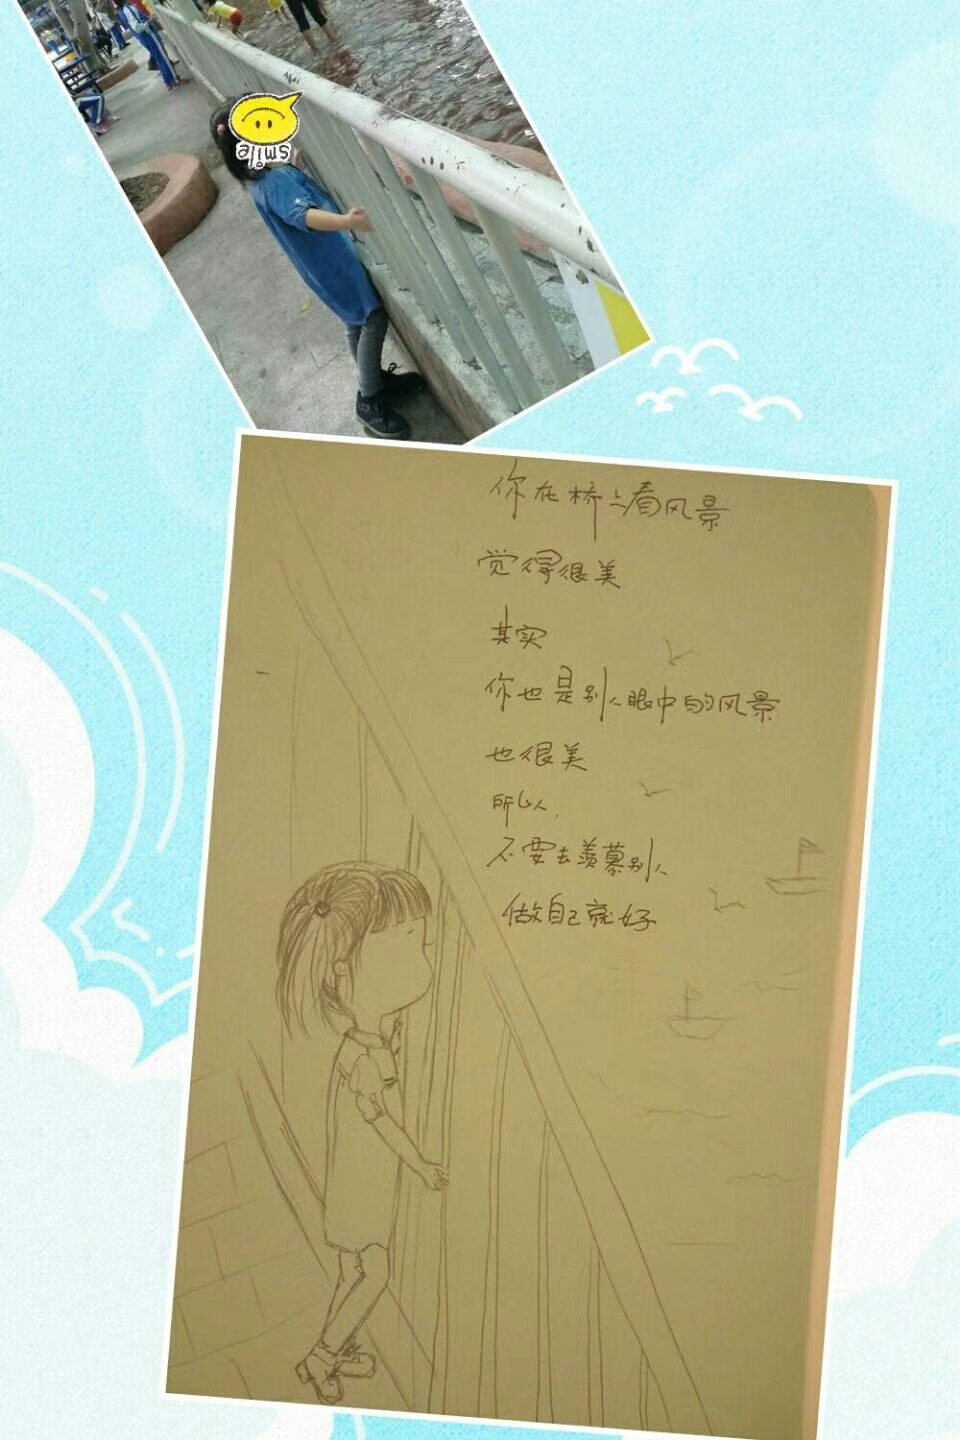 smile
你在桥上看风景
觉得很美
其实
你也是别人眼中的风景
也很美
所以,
不要去羡慕别人
做自己就好